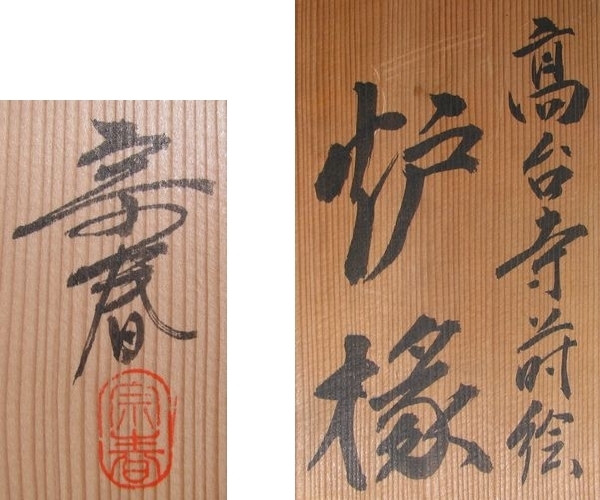 高台寺蒔絵
炉椽
宗春
宗春